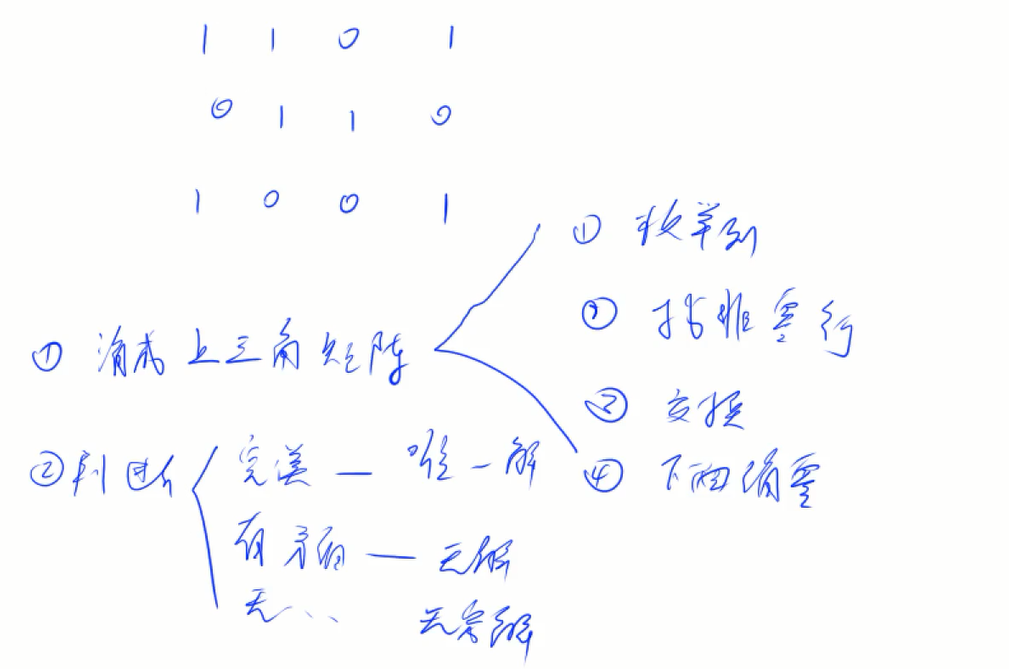 1 1 0 1
0 1 1 0
1 0 0 1
① 消成上三角矩阵
① 枚举列
② 找非零行
③ 交换
④ 下面消零
② 判断
完美 — 唯一解
有矛盾 — 无解
无... 无穷解